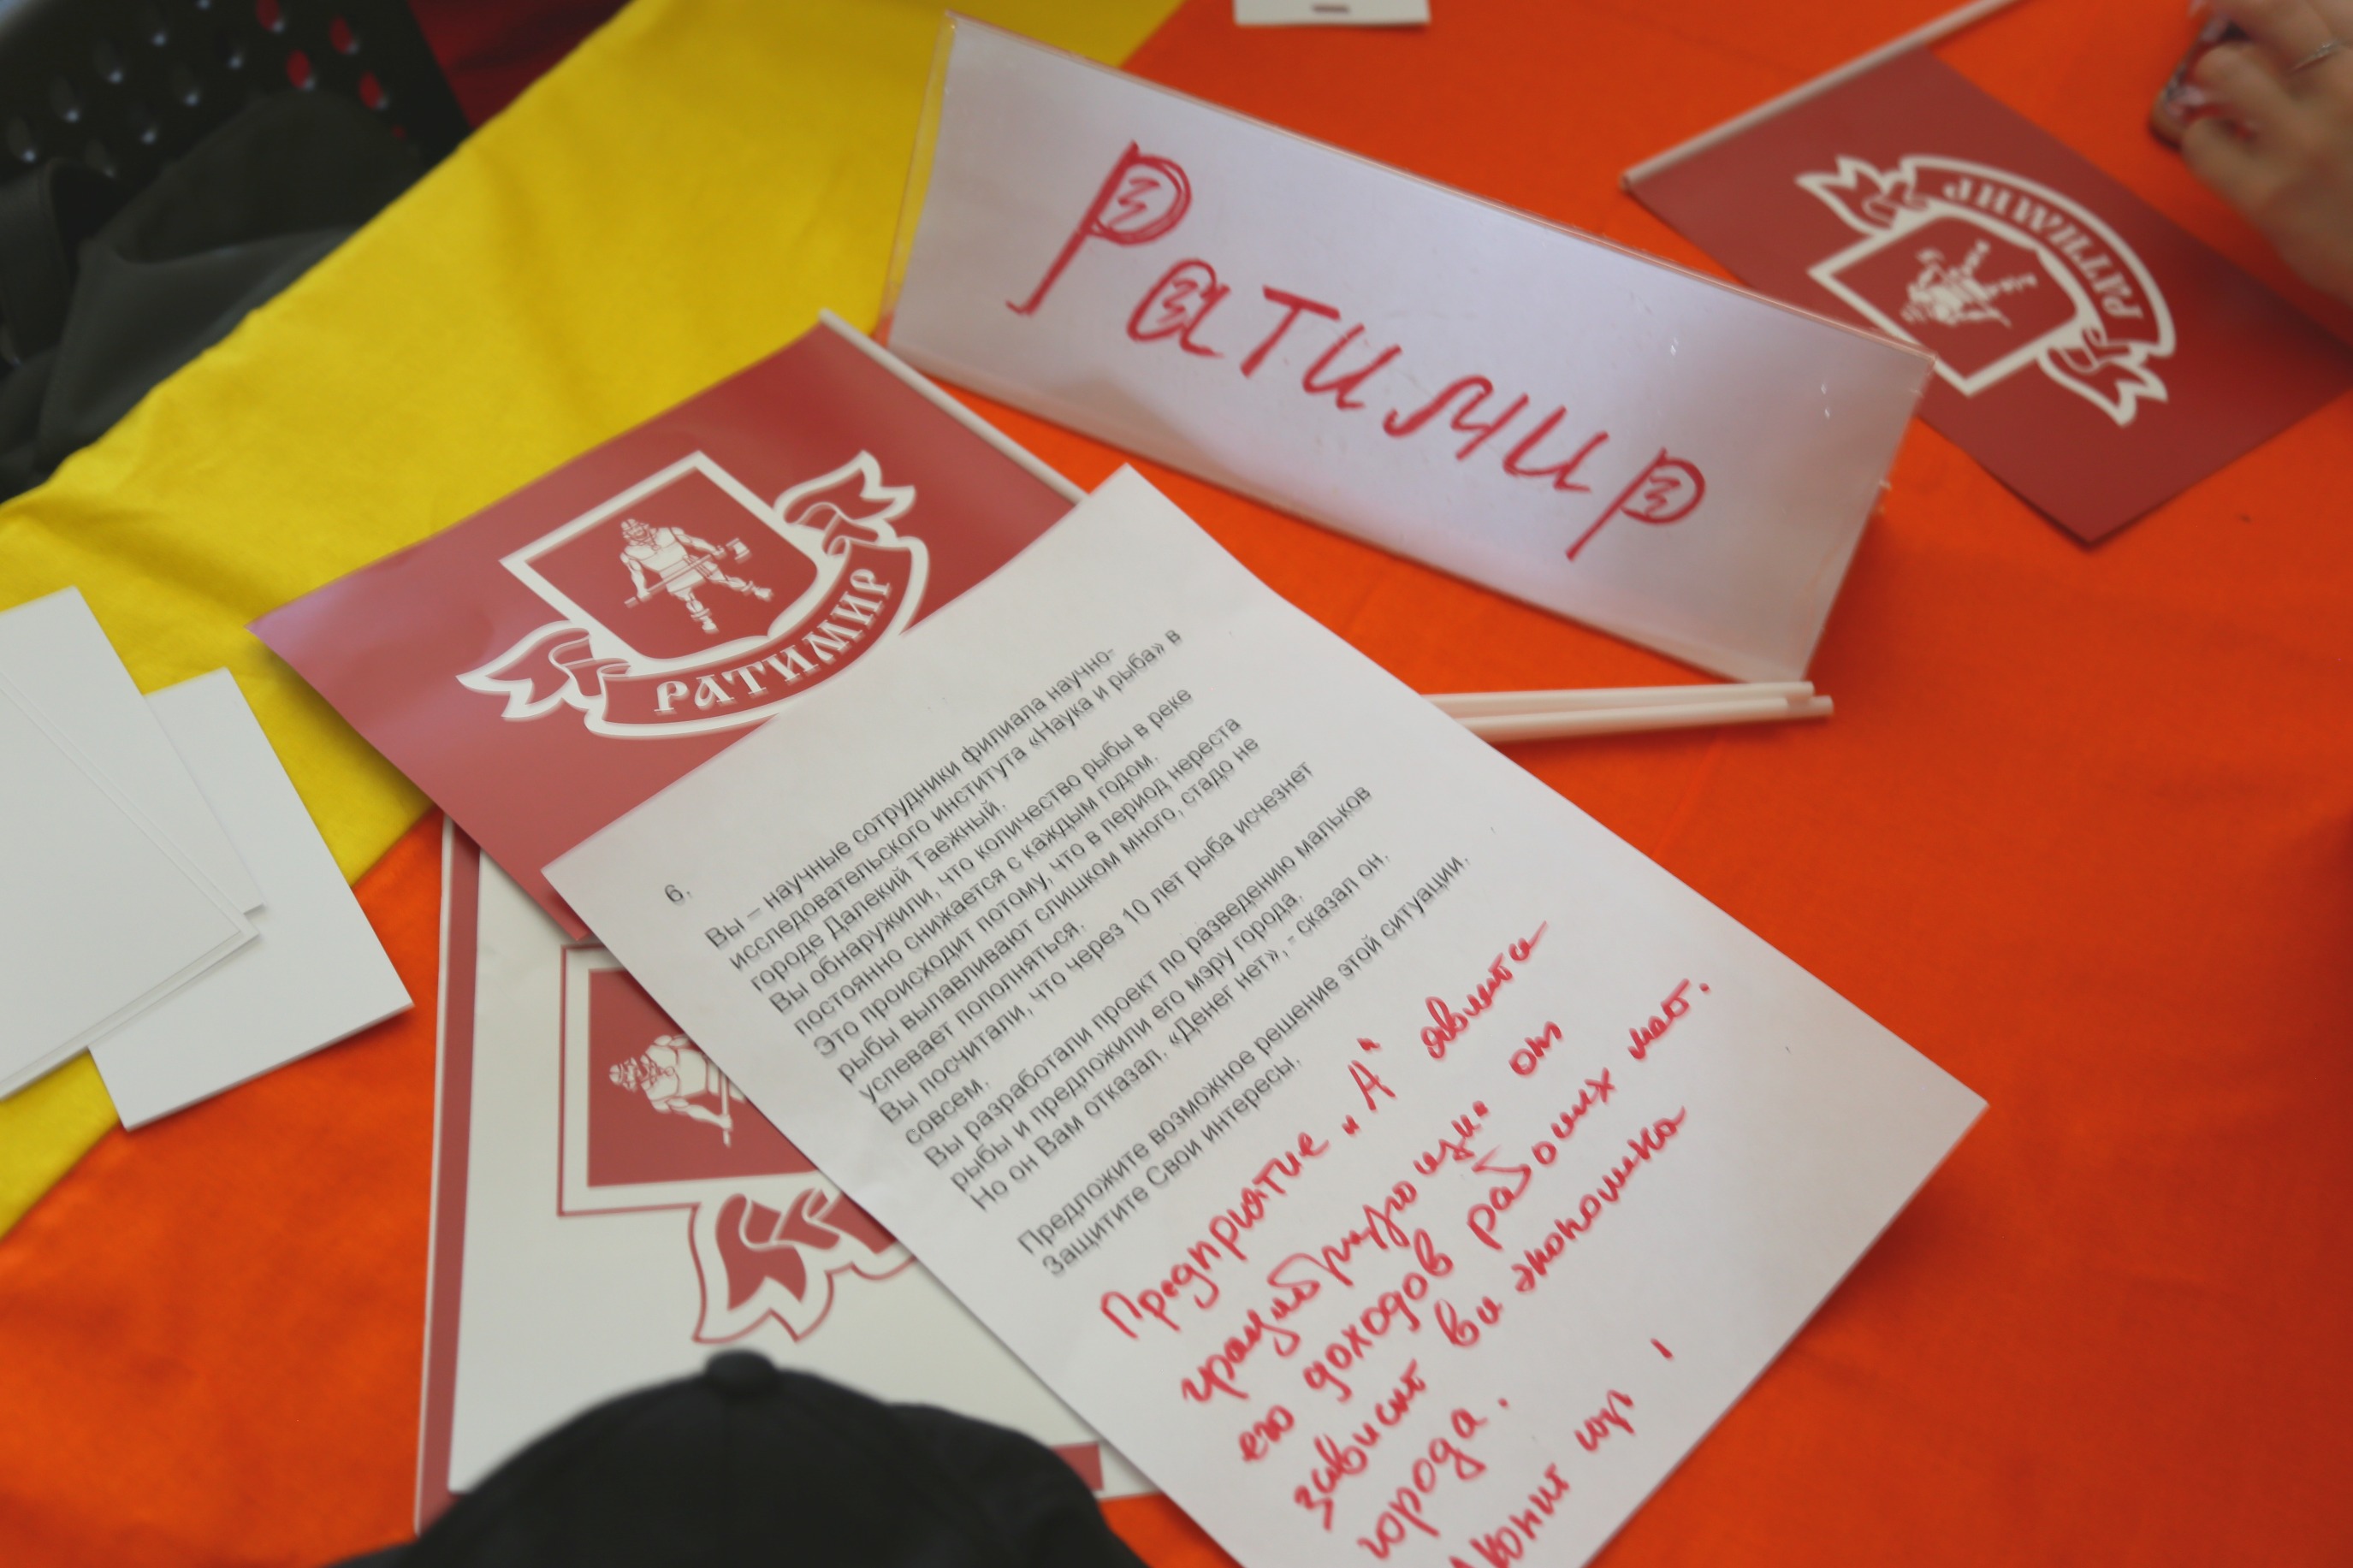 Ратимир
РАТИМИР
РАТИМИР
6.
Вы – научные сотрудники филиала научно-
исследовательского института «Наука и рыба» в
городе Далекий Таежный.
Вы обнаружили, что количество рыбы в реке
постоянно снижается с каждым годом.
Это происходит потому, что в период нереста
рыбы вылавливают слишком много, стадо не
успевает пополняться.
Вы посчитали, что через 10 лет рыба исчезнет
совсем.
Вы разработали проект по разведению мальков
рыбы и предложили его мэру города.
Но он Вам отказал. «Денег нет», - сказал он.
Предложите возможное решение этой ситуации.
Защитите Свои интересы.
Предприятие „А“
от
его доходов рабочих мест.
зависит вся экономика
города.